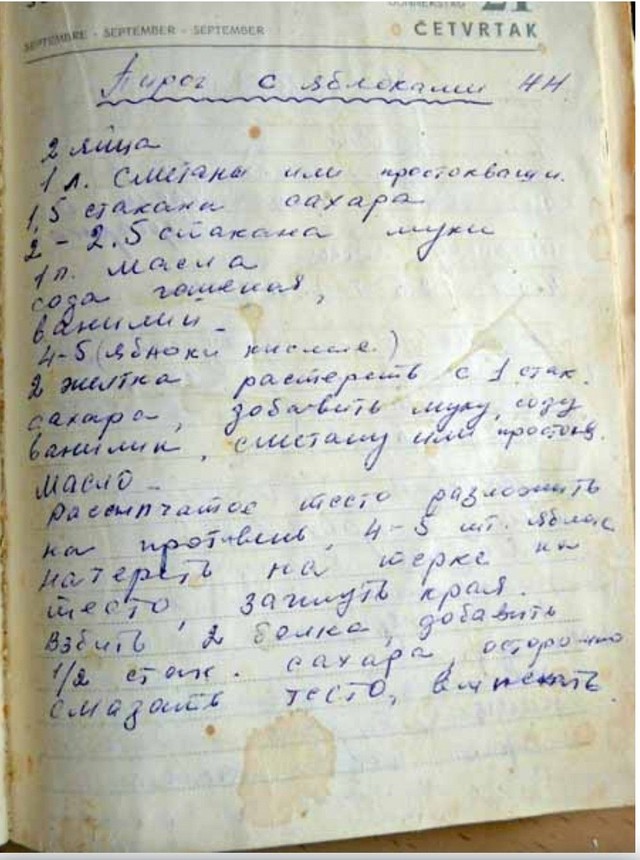 DONNERSTAG 21
SEPTEMBRE - SEPTEMBER - SEPTEMBER
ČETVRTAK
Пирог с яблоками НН.
2 яйца
1 л. сметаны или простокваши.
1,5 стакана сахара
2 - 2.5 стакана муки
1 п. масла
сода гашеная,
ванилин -
4-5 (яблоки кислые.)
2 желтка растереть с 1 стак.
сахара, добавить муку, соду
ванилин, сметану или простокв.
масло -
Рассыпчатое тесто разложить
на противень, 4-5 шт. яблок
натереть на терке на
тесто, загнуть края.
Взбить 2 белка, добавить
1/2 стак. сахара, осторожно
смазать тесто, выпекать.